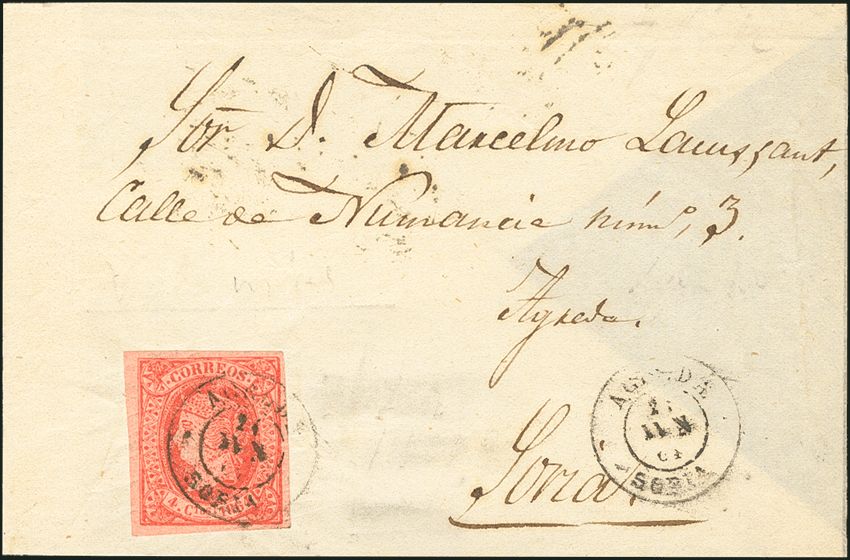 Sor. D. Marcelino
Calle de Numancia núm.º, 3.
Agreda.
Soria.
CORREOS
4. CUARTOS
AGREDA
21
JUN
SORIA
AGREDA
JUN
64
SORIA